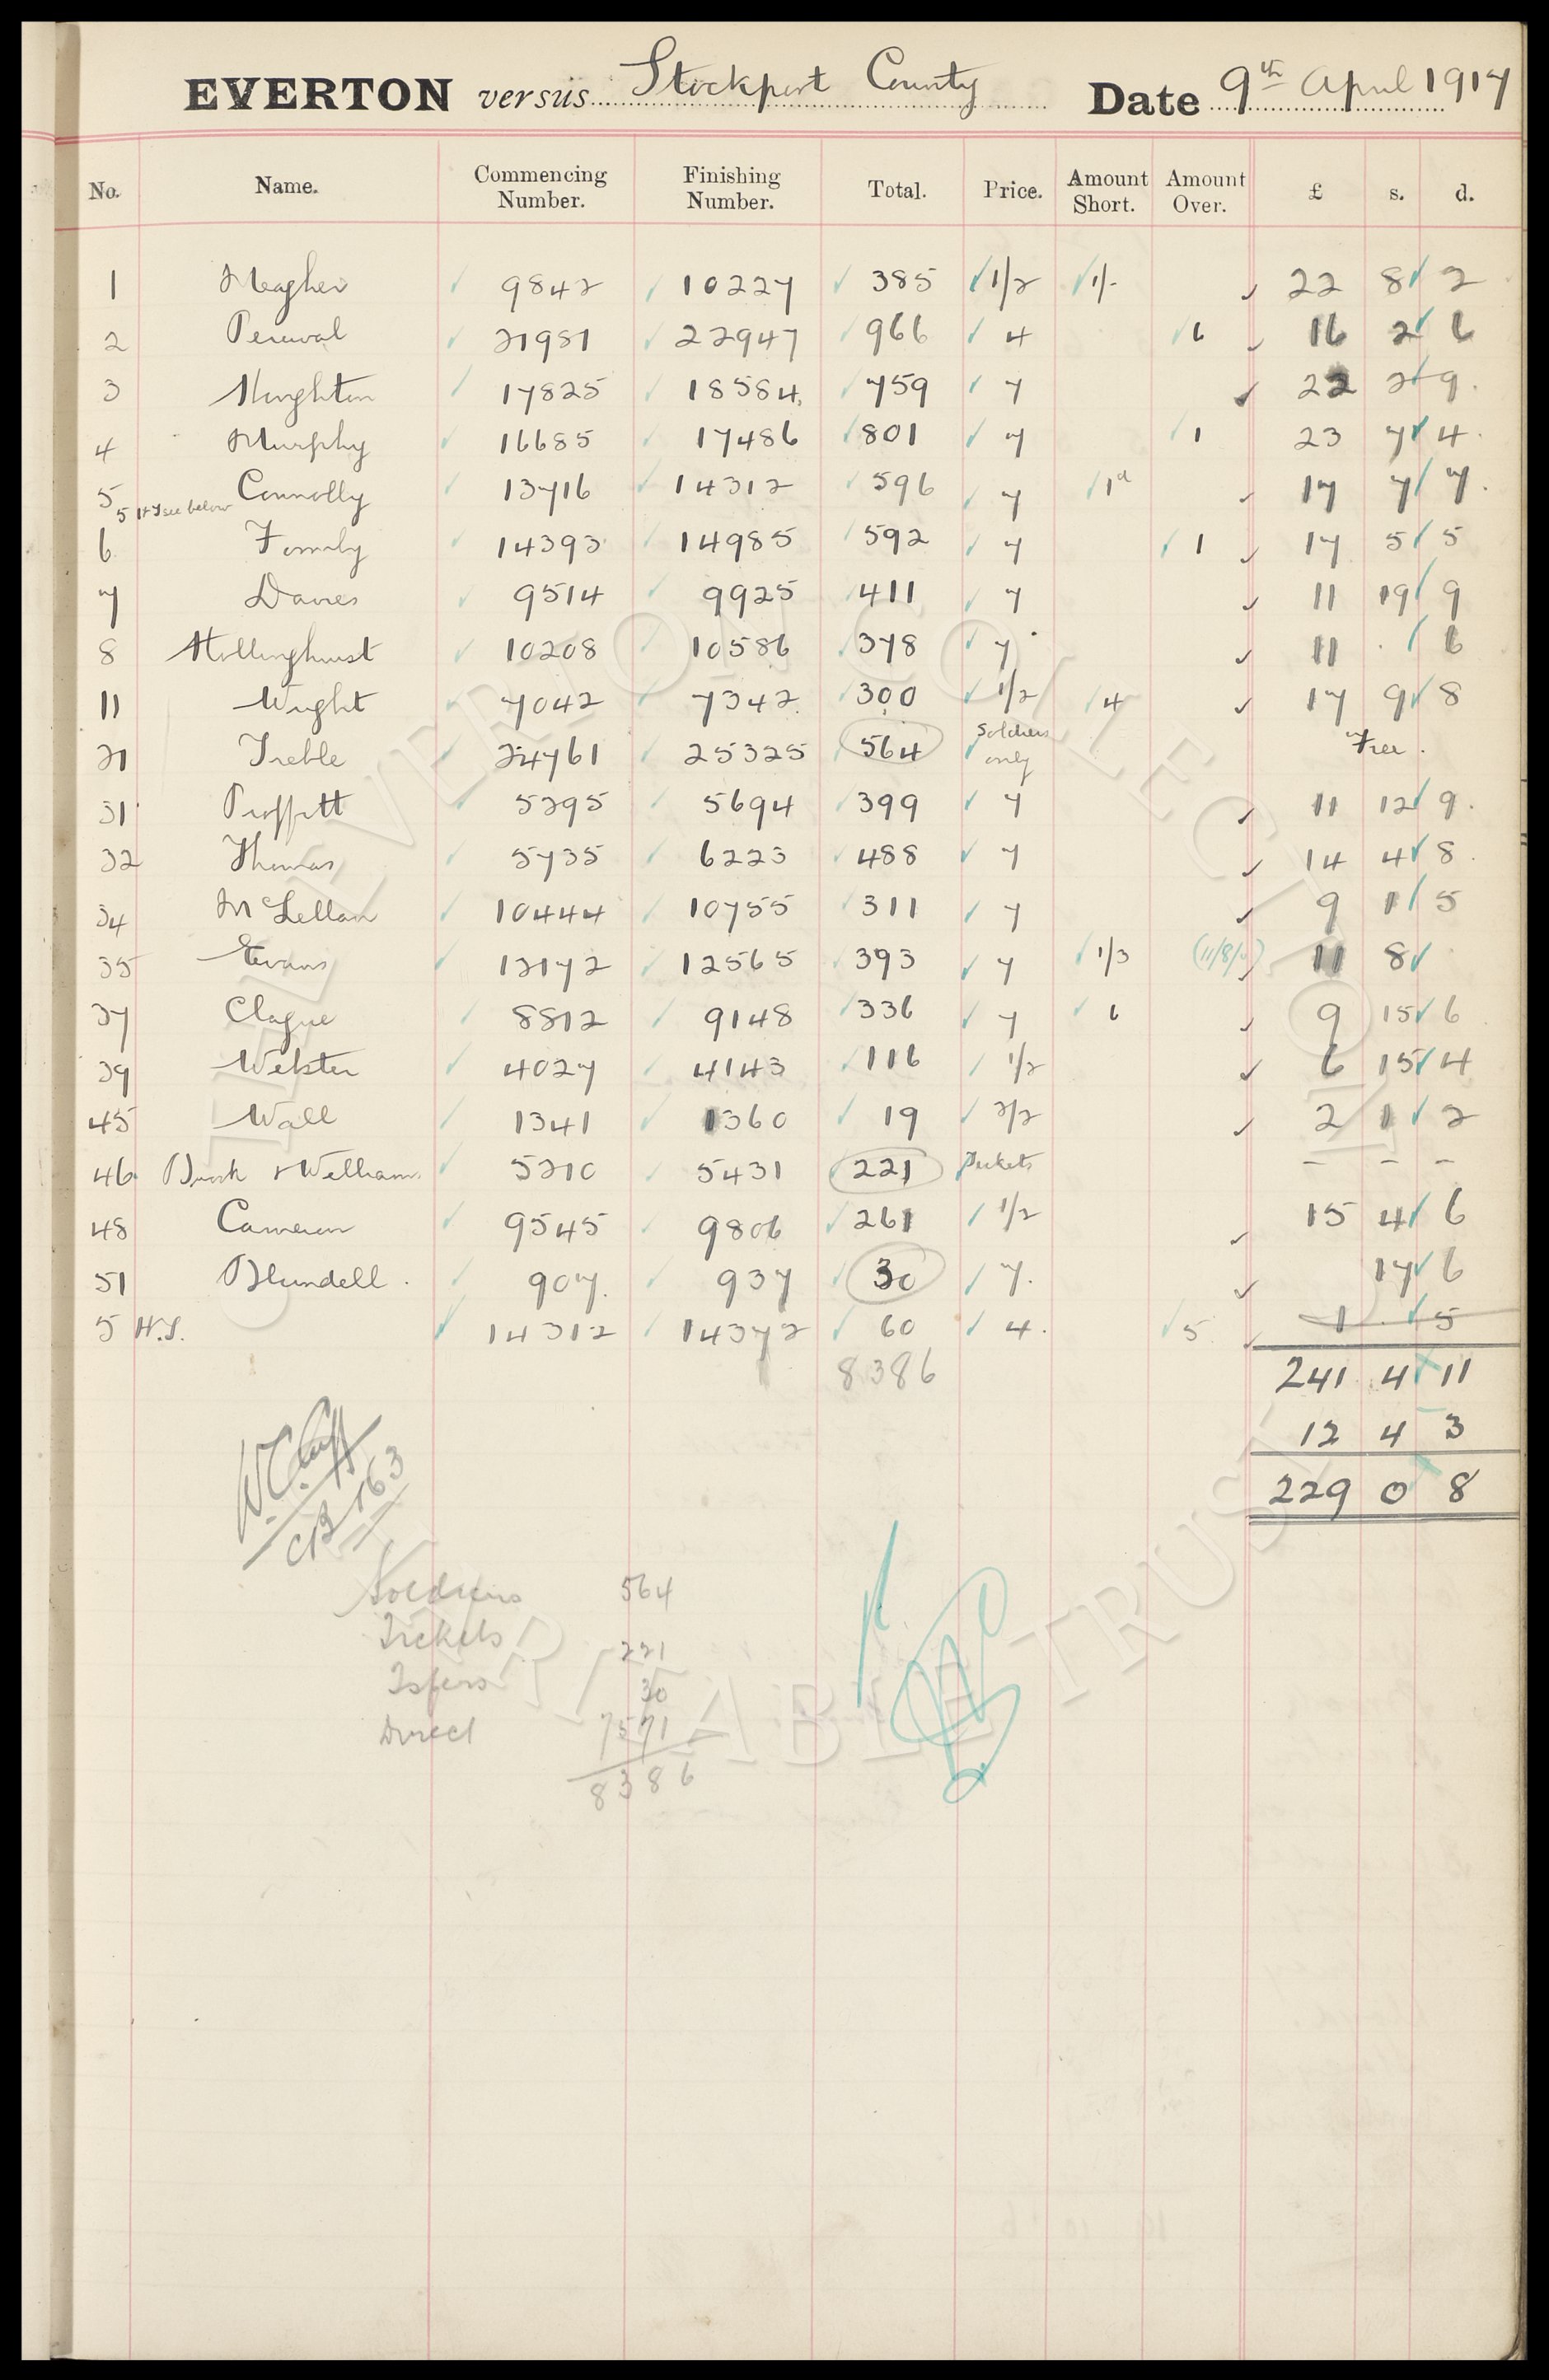 EVERTON versus Stockport County Date 9th April 1917
No. Name. Commencing Number. Finishing Number. Total. Price. Amount Short. Amount Over. £ s. d.
1 Meagher 9842 10227 385 1/2 1/- 22 8 2
2 Percival 21981 22947 966 4 6 16 2 6
3 Houghton 17825 18584 759 7 22 2 9
4 Murphy 16685 17486 801 7 1 23 7 4
5 Connolly 13716 14312 596 7 1d 17 7 7
5 H.T see below
6 Formby 14393 14985 592 7 1 17 5 5
7 Davies 9514 9925 411 7 11 19 9
8 Hollinghurst 10208 10586 378 7 11 . 6
11 Wright 7042 7342 300 1/2 4 17 9 8
21 Treble 24761 25325 564 Soldiers only Free.
31 Proffitt 5295 5694 399 7 11 12 9
32 Thomas 5735 6223 488 7 14 4 8
34 McLellan 10444 10755 311 7 9 1 5
35 Evans 12172 12565 393 7 1/3 (11/8/0) 11 8
37 Clague 8812 9148 336 7 6 9 15 6
39 Webster 4027 4143 116 1/2 6 15 4
45 Wall 1341 1360 19 2/2 2 1 2
46 & Williams 5210 5431 221 Tickets - - -
48 Cameron 9545 9806 261 1/2 15 4 6
51 Blundell. 907. 937 30 7. 17 6
5 H.T. 14312 14372 60 4. 5 1 . 5
8386 241 4 11
12 4 3
229 0 8
W.C. Cuff
CB 163
Soldiers 564
Tickets 221
Tsfers 30
Direct 7571
8386
EVERTON COLLECTION
CHARITABLE TRUST